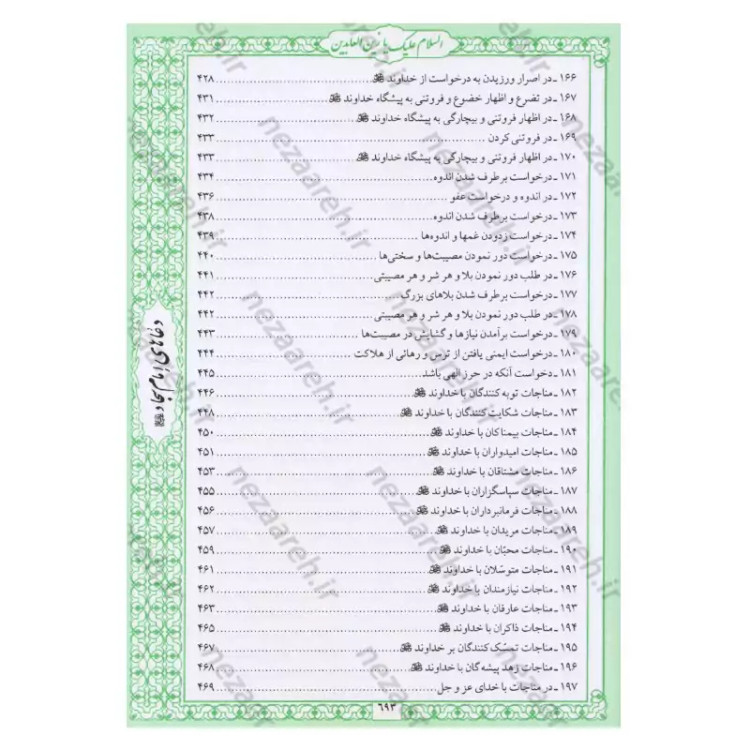 السلام علیک یا زین العابدین
۱۶۶ ـ در اصرار ورزیدن به درخواست از خداوند ﷻ ........ ۴۲۸
۱۶۷ ـ در تضرع و اظهار خضوع و فروتنی به پیشگاه خداوند ﷻ ........ ۴۳۱
۱۶۸ ـ در اظهار فروتنی و بیچارگی به پیشگاه خداوند ﷻ ........ ۴۳۲
۱۶۹ ـ در فروتنی کردن ........ ۴۳۳
۱۷۰ ـ در اظهار فروتنی و بیچارگی به پیشگاه خداوند ﷻ ........ ۴۳۳
۱۷۱ ـ درخواست برطرف شدن اندوه ........ ۴۳۴
۱۷۲ ـ در اندوه و درخواست عفو ........ ۴۳۶
۱۷۳ ـ درخواست برطرف شدن اندوه ........ ۴۳۸
۱۷۴ ـ درخواست زدودن غمها و اندوه‌ها ........ ۴۳۹
۱۷۵ ـ درخواست دور نمودن مصیبت‌ها و سختی‌ها ........ ۴۴۰
۱۷۶ ـ در طلب دور نمودن بلا و هر شر و هر مصیبتی ........ ۴۴۱
۱۷۷ ـ درخواست برطرف شدن بلاهای بزرگ ........ ۴۴۲
۱۷۸ ـ در طلب دور نمودن بلا و هر شر و هر مصیبتی ........ ۴۴۲
۱۷۹ ـ درخواست برآمدن نیازها و گشایش در مصیبت‌ها ........ ۴۴۳
۱۸۰ ـ درخواست ایمنی یافتن از ترس و رهائی از هلاکت ........ ۴۴۴
۱۸۱ ـ دخواست آنکه در حرز الهی باشد. ........ ۴۴۵
۱۸۲ ـ مناجات توبه کنندگان با خداوند ﷻ ........ ۴۴۶
۱۸۳ ـ مناجات شکایت کنندگان با خداوند ﷻ ........ ۴۴۸
۱۸۴ ـ مناجات بیمناکان با خداوند ﷻ ........ ۴۵۰
۱۸۵ ـ مناجات امیدواران با خداوند ﷻ ........ ۴۵۱
۱۸۶ ـ مناجات مشتاقان با خداوند ﷻ ........ ۴۵۳
۱۸۷ ـ مناجات سپاسگزاران با خداوند ﷻ ........ ۴۵۵
۱۸۸ ـ مناجات فرمانبرداران با خداوند ﷻ ........ ۴۵۶
۱۸۹ ـ مناجات مریدان با خداوند ﷻ ........ ۴۵۷
۱۹۰ ـ مناجات محبّان با خداوند ﷻ ........ ۴۵۹
۱۹۱ ـ مناجات متوسّلان با خداوند ﷻ ........ ۴۶۱
۱۹۲ ـ مناجات نیازمندان با خداوند ﷻ ........ ۴۶۲
۱۹۳ ـ مناجات عارفان با خداوند ﷻ ........ ۴۶۳
۱۹۴ ـ مناجات ذاکران با خداوند ﷻ ........ ۴۶۵
۱۹۵ ـ مناجات تمسّک کنندگان بر خداوند ﷻ ........ ۴۶۷
۱۹۶ ـ مناجات زهد پیشه گان با خداوند ﷻ ........ ۴۶۸
۱۹۷ ـ در مناجات با خدای عز و جل ........ ۴۶۹
دعاهای امام سجاد
۶۹۳
nezaareh.ir